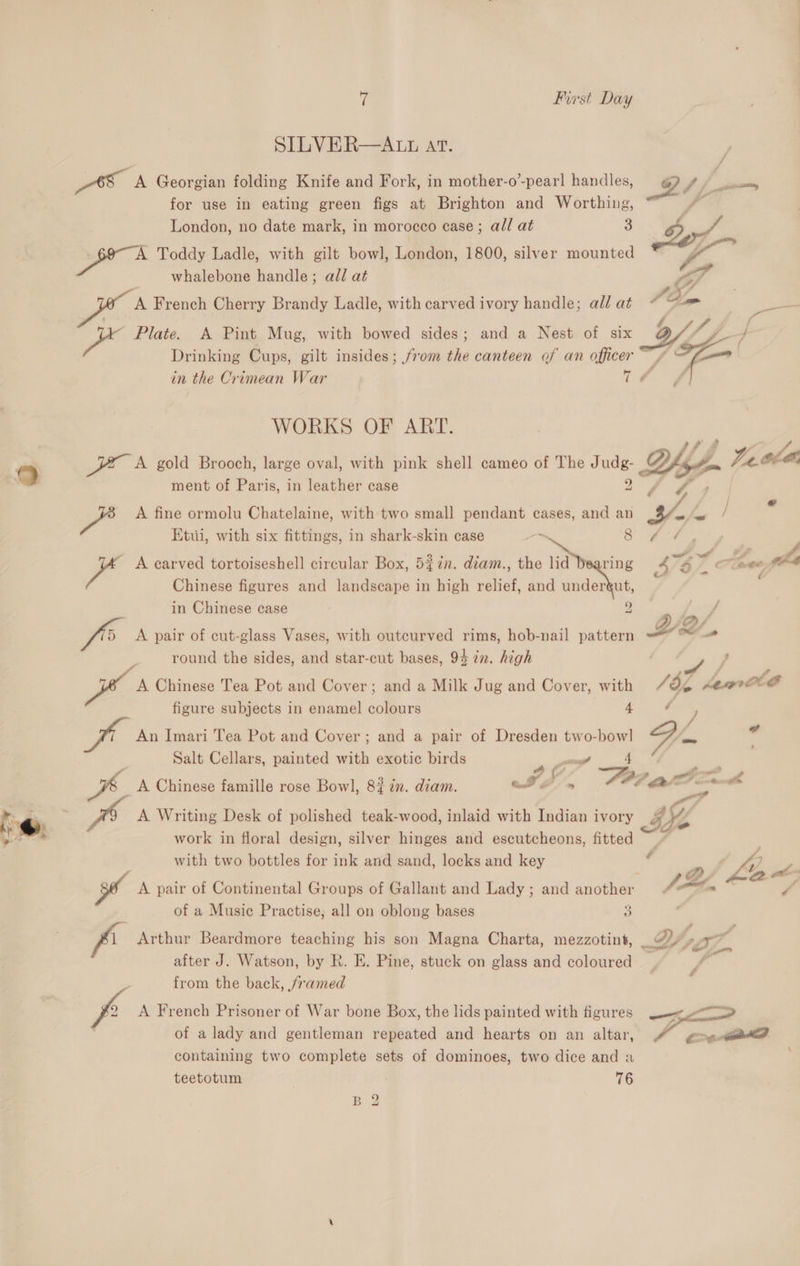 7 First Day
SILVER—ALL AT.
68 A Georgian folding Knife and Fork, in mother-o'-pearl handles,
for use in eating green figs at Brighton and Worthing,
London, no date mark, in morocco case; all at 3
69 A Toddy Ladle, with gilt bowl, London, 1800, silver mounted
whalebone handle; all at
70 A French Cherry Brandy Ladle, with carved ivory handle; all at
71 Plate. A Pint Mug, with bowed sides; and a Nest of six
Drinking Cups, gilt insides; from the canteen of an officer
in the Crimean War 7
WORKS OF ART.
72 A gold Brooch, large oval, with pink shell cameo of The Judg-
ment of Paris, in leather case 2
73 A fine ormolu Chatelaine, with two small pendant cases, and an
Etui, with six fittings, in shark-skin case 8
74 A carved tortoiseshell circular Box, 5¾ in. diam., the lid bearing
Chinese figures and landscape in high relief, and undercut,
in Chinese case 2
75 A pair of cut-glass Vases, with outcurved rims, hob-nail pattern
round the sides, and star-cut bases, 9¾ in. high
76 A Chinese Tea Pot and Cover; and a Milk Jug and Cover, with
figure subjects in enamel colours 4
77 An Imari Tea Pot and Cover; and a pair of Dresden two-bowl
Salt Cellars, painted with exotic birds 4
78 A Chinese famille rose Bowl, 8¾ in. diam.
79 A Writing Desk of polished teak-wood, inlaid with Indian ivory
work in floral design, silver hinges and escutcheons, fitted
with two bottles for ink and sand, locks and key
80 A pair of Continental Groups of Gallant and Lady; and another
of a Music Practise, all on oblong bases 3
81 Arthur Beardmore teaching his son Magna Charta, mezzotint,
after J. Watson, by R. E. Pine, stuck on glass and coloured
from the back, framed
82 A French Prisoner of War bone Box, the lids painted with figures
of a lady and gentleman repeated and hearts on an altar,
containing two complete sets of dominoes, two dice and a
teetotum 76
B 2